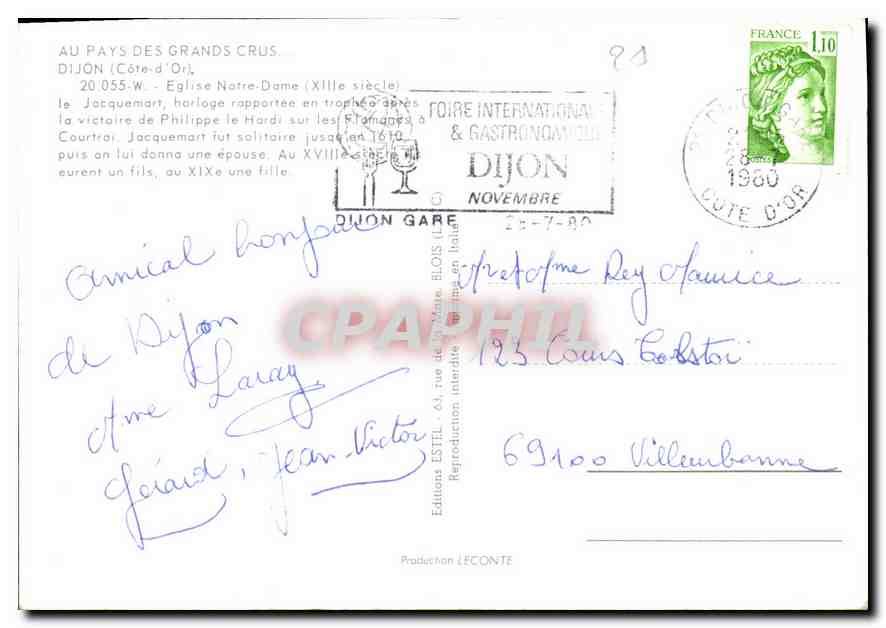 AU PAYS DES GRANDS CRUS...
DIJON (Côte-d'Or).
20.055-W. - Eglise Notre-Dame (XIIIe siècle)
le Jacquemart, horloge rapportée en trophée après
la victoire de Philippe le Hardi sur les Flamands à
Courtrai. Jacquemart fut solitaire jusqu'en 1610
puis on lui donna une épouse. Au XVIIIe siècle ils
eurent un fils, au XIXe une fille.
21
FOIRE INTERNATIONALE
& GASTRONOMIQUE
DIJON
NOVEMBRE
DIJON GARE
28-7-80
FRANCE
1,10
POSTES
28-7
1980
COTE D'OR
Amical bonjour
de Dijon
Mme Laray
Gérard, Jean-Victor
Editions ESTEL - 63, rue de la Mare, BLOIS (L.-&-C)
Reproduction interdite - Imprimé en Italie
Mr et Mme Rey Maurice
123 Cours Tolstoï
69100 Villeurbanne
Production LECONTE
CPAPHIL